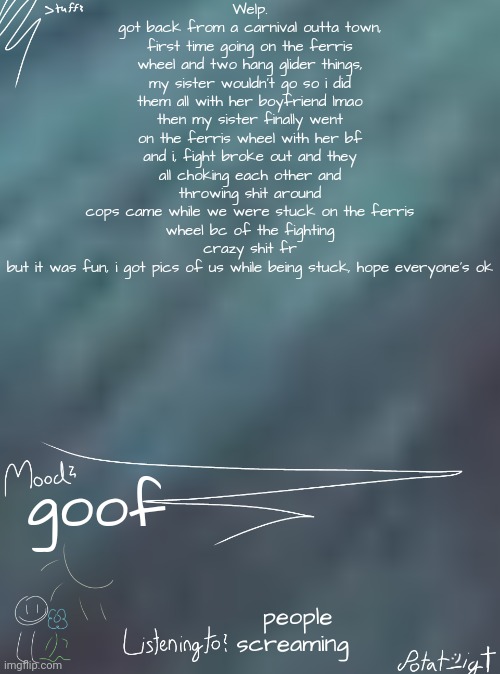 Stuff?
Welp.
got back from a carnival outta town,
first time going on the ferris
wheel and two hang glider things,
my sister wouldn't go so i did
them all with her boyfriend lmao
then my sister finally went
on the ferris wheel with her bf
and i, fight broke out and they
all choking each other and
throwing shit around
cops came while we were stuck on the ferris
wheel bc of the fighting
crazy shit fr
but it was fun, i got pics of us while being stuck, hope everyone's ok
Mood?
goof
people
Listening to? screaming
imgflip.com